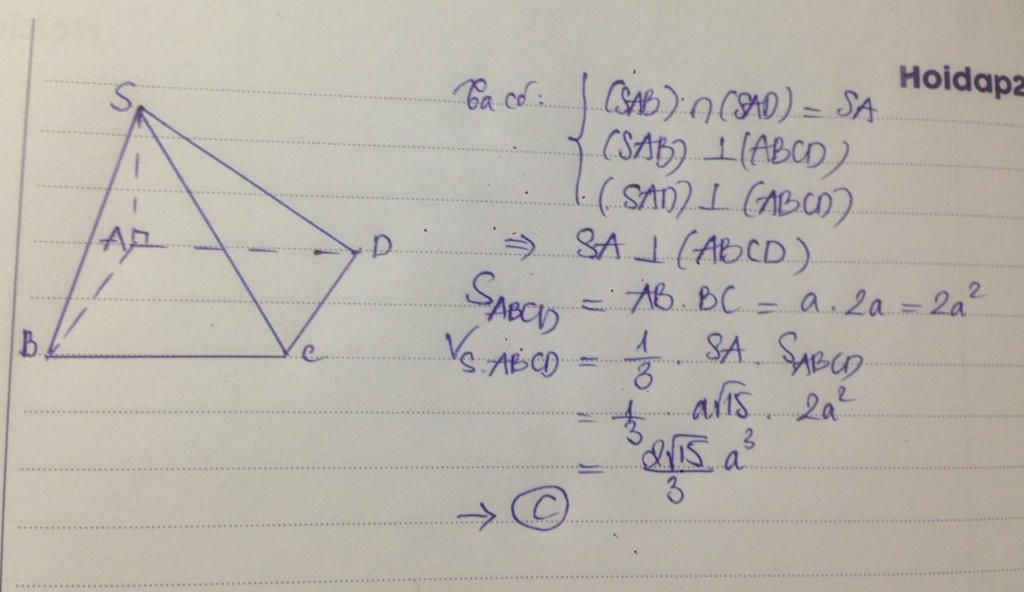 Hoidap2
Ta có: (SAB) ∩ (SAD) = SA
(SAB) ⊥ (ABCD)
(SAD) ⊥ (ABCD)
⇒ SA ⊥ (ABCD)
S_ABCD = AB.BC = a.2a = 2a²
V_S.ABCD = 1/3 . SA . S_ABCD
= 1/3 . a√15 . 2a²
= 2√15/3 a³
→ C
S
A
D
B
C